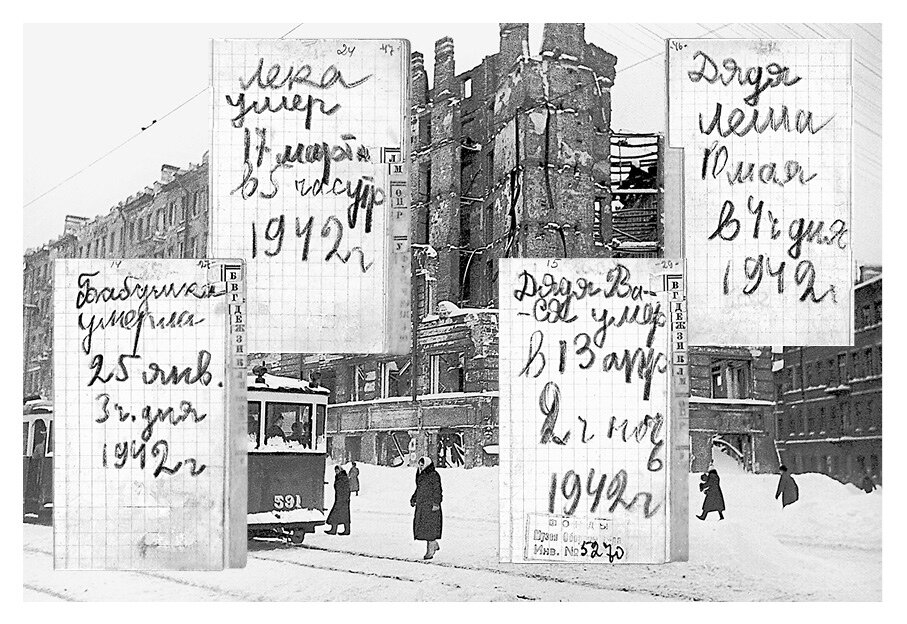 24 47
Лека
умер
17 марта
в 5 час утр
1942 г
46
Дядя
Леша
10 мая
в 4 ч дня
1942 г
14 27
Бабушка
умерла
25 янв.
3 ч. дня
1942 г
А
Б
В
Г
Д
Е
Ж
З
И
К
15 29
Дядя Ва-
-ся умер
в 13 апр
2 ч ноч
1942 г
В
Г
Д
Е
Ж
З
И
К
Л
М
Инв. № 5270
591